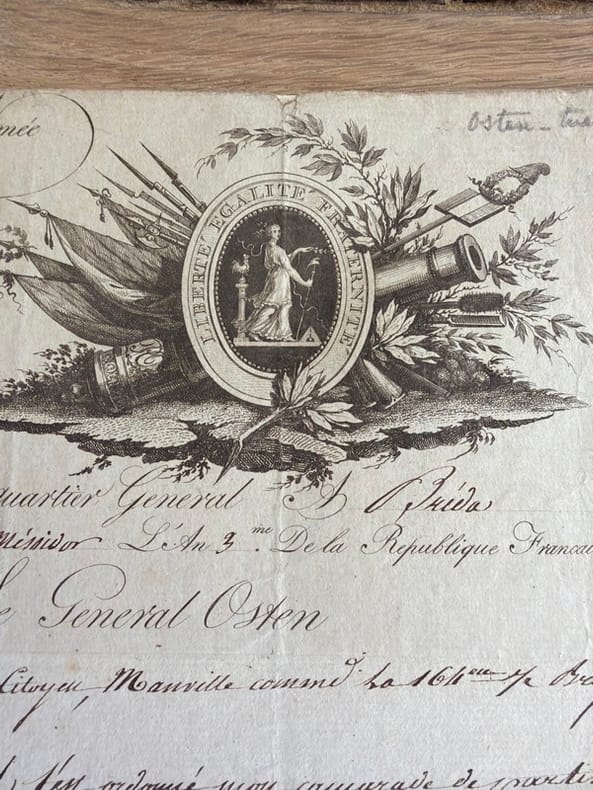 mée
Osten
LIBERTÉ EGALITÉ FRATERNITÉ
uartier General A Bréda
Messidor L'An 3.me De la Republique Francai
e General Osten
Citoyen, Manville commd. La 164eme
ordonné mon camarade de partir